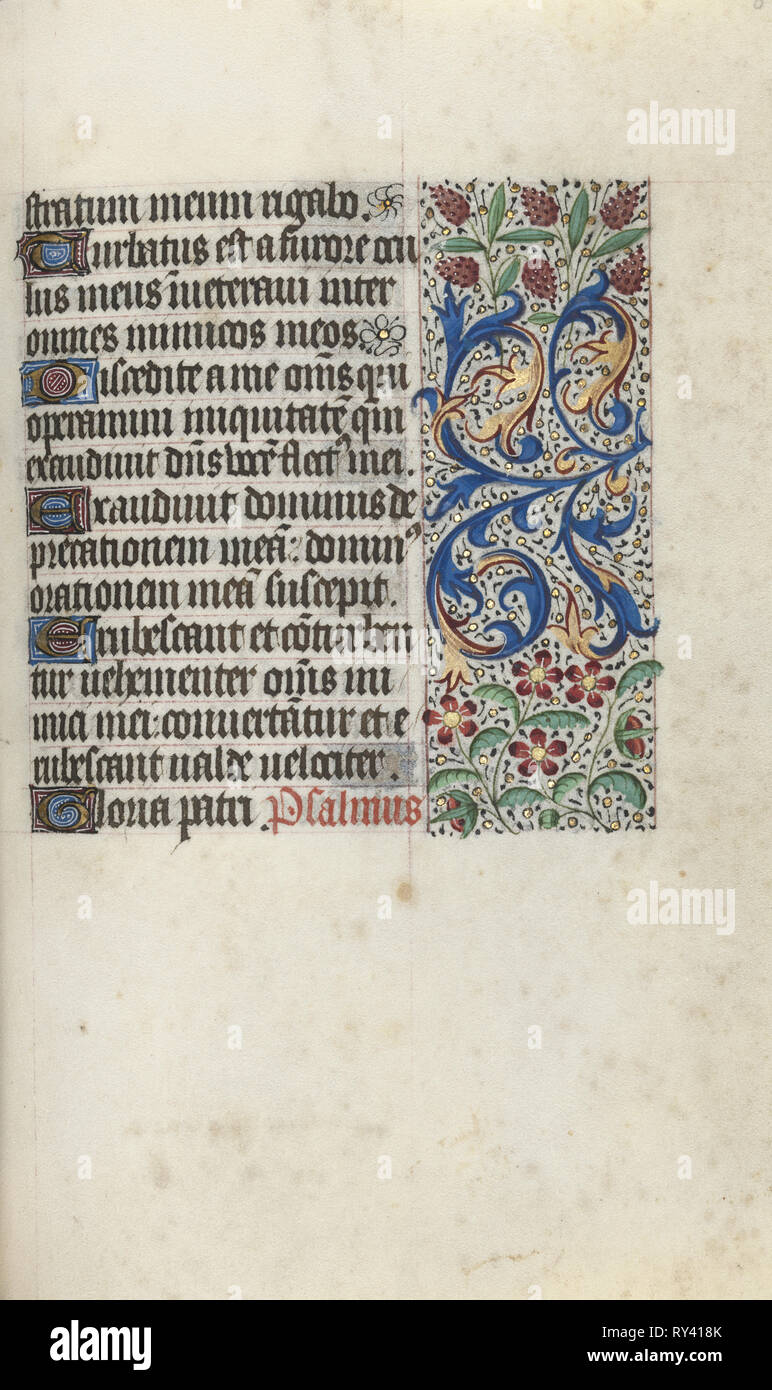 stratum meum rigabo.
Turbatus est a furore ocu
lus meus īueteraui inter
omnes inimicos meos.
Discedite a me om̄s qui
operamini iniquitatē qm̄
exaudiuit dn̄s vocē fletꝰ mei.
Exaudiuit dominus de
precationem meā: dominꝰ
orationem meā suscepit.
Erubescant et cōturben
tur uehementer om̄s ini
mici mei: conuertātur et e
rubescant ualde uelociter.
Gloria patri. Psalmus
alamy
alamy
alamy
Image ID: RY418K
www.alamy.com